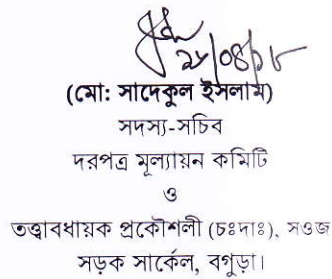 ২৮/০৪/১৮
(মো: সাদেকুল ইসলাম)
সদস্য-সচিব
দরপত্র মূল্যায়ন কমিটি
ও
তত্ত্বাবধায়ক প্রকৌশলী (চঃদাঃ), সওজ
সড়ক সার্কেল, বগুড়া।